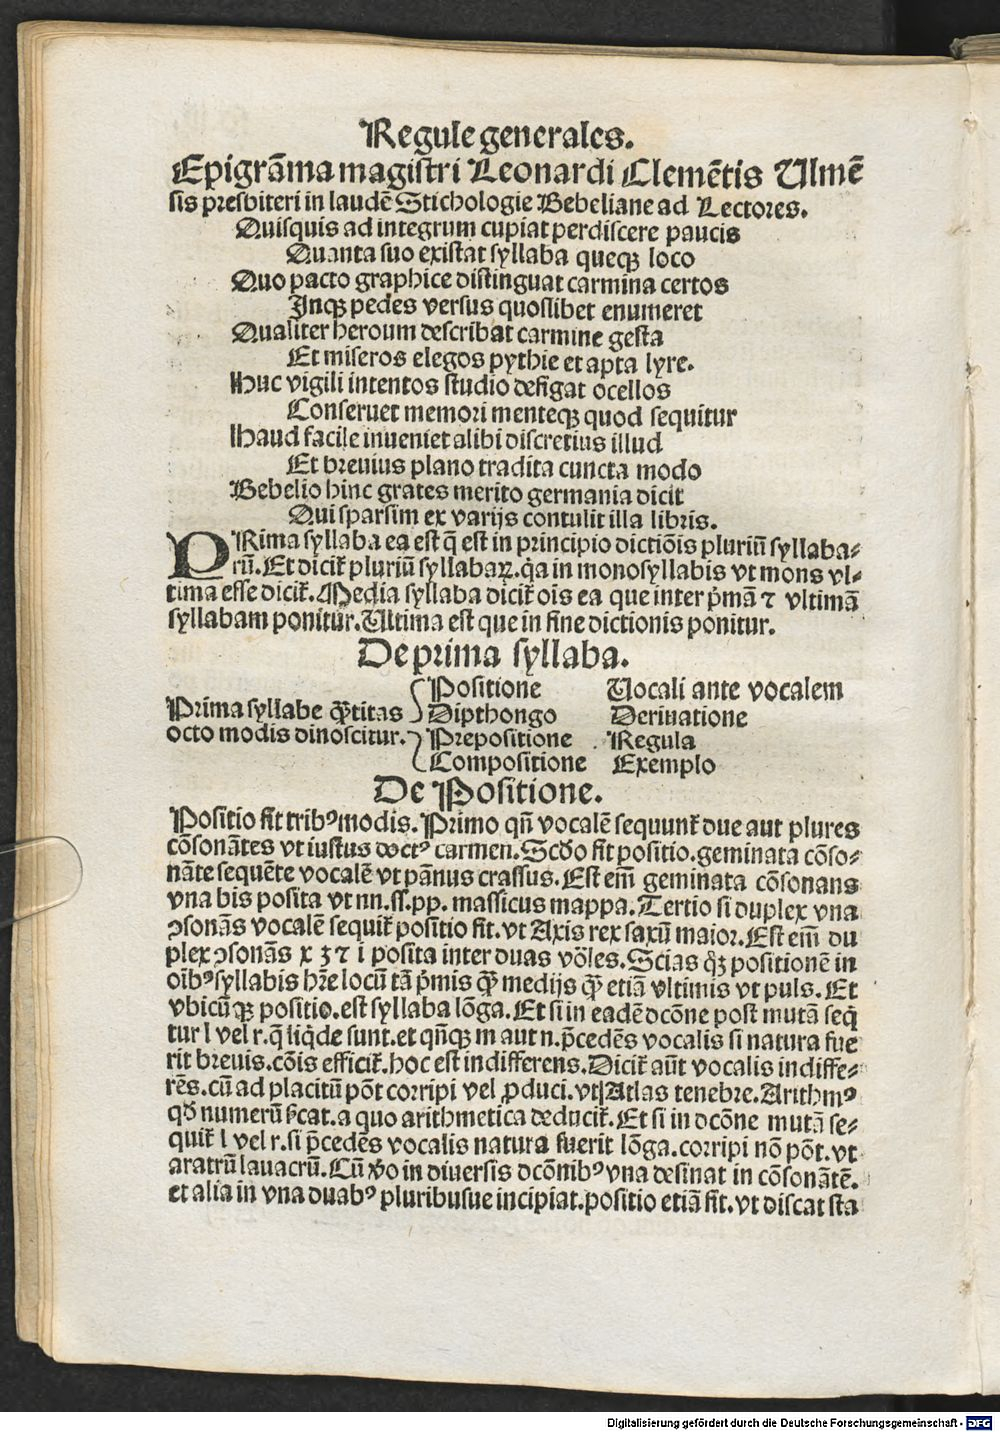 Regule generales.
Epigrãma magistri Leonardi Clemẽtis Ulmẽ
sis presbiteri in laudẽ Stichologie Bebeliane ad Lectores.
Quisquis ad integrum cupiat perdiscere paucis
Quanta suo existat syllaba queqꝫ loco
Quo pacto graphice distinguat carmina certos
Inqꝫ pedes versus quoslibet enumeret
Qualiter heroum describat carmine gesta
Et miseros elegos pythie et apta lyre.
Huc vigili intentos studio defigat ocellos
Conseruet memori menteqꝫ quod sequitur
Haud facile inueniet alibi discretius illud
Et breuius plano tradita cuncta modo
Bebelio hinc grates merito germania dicit
Qui sparsim ex varijs contulit illa libris.
PRima syllaba ea est q̃ est in principio dictiõis pluriũ syllaba-
rũ. Et dicit᷑ pluriũ syllabaꝝ. q̃a in monosyllabis vt mons vl-
tima esse dicit᷑. Media syllaba dicit᷑ oĩs ea que inter p̃mã ⁊ vltimã
syllabam ponitur. Ultima est que in fine dictionis ponitur.
De prima syllaba.
Positione Uocali ante vocalem
Prima syllabe q̃titas Dipthongo Deriuatione
octo modis dinoscitur. Prepositione Regula
Compositione Exemplo
De Positione.
Positio fit tribꝰ modis. Primo qñ vocalẽ sequunt᷑ due aut plures
cõsonãtes vt iustus doctꝰ carmen. Scd̃o fit positio. geminata cõso-
nãte sequẽte vocalẽ vt pãnus crassus. Est em̃ geminata cõsonans
vna bis posita vt nn. ss. pp. massicus mappa. Tertio si duplex vna
ↄsonãs vocalẽ sequit᷑ positio fit. vt Axis rex saxũ maior. Est em̃ du
plex ↄsonãs x ʒ ⁊ i posita inter duas võles. Scias q̃ꝫ positionẽ in
oĩbꝰ syllabis hr̃e locũ tã p̃mis q̃ꝫ medijs q̃ꝫ etiã vltimis vt puls. Et
vbicũqꝫ positio. est syllaba lõga. Et si in eadẽ dcõne post mutã seq̃
tur l vel r. q̃ liq̃de sunt. et qñqꝫ m aut n. p̃cedẽs vocalis si natura fue
rit breuis. cõis efficit᷑. hoc est indifferens. Dicit᷑ aũt vocalis indiffe-
rẽs. cũ ad placitũ põt corripi vel ꝓduci. vt Atlas tenebre. Arithmꝰ
qd̃ numerũ s̃cat. a quo arithmetica deducit᷑. Et si in dcõne mutã se-
quit᷑ l vel r. si p̃cedẽs vocalis natura fuerit lõga. corripi nõ põt. vt
aratrũ lauacrũ. Cũ v̓o in diuersis dcõnibꝰ vna desinat in cõsonãtẽ.
et alia in vna duabꝰ pluribusue incipiat. positio etiã fit. vt discat sta
Digitalisierung gefördert durch die Deutsche Forschungsgemeinschaft - DFG